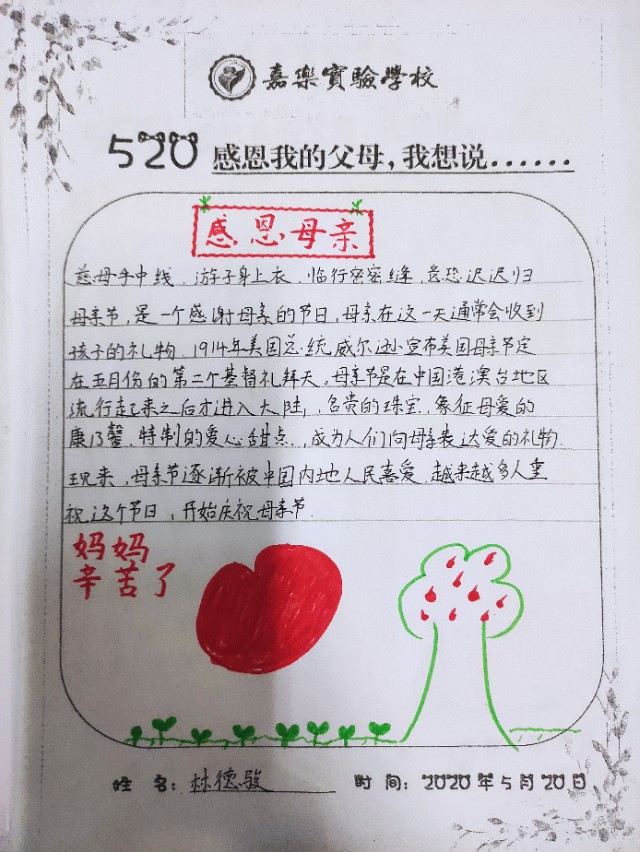 嘉樂實驗學校
520 感恩我的父母，我想说......
感恩母亲
慈母手中线，游子身上衣，临行密密缝，意恐迟迟归
母亲节，是一个感谢母亲的节日，母亲在这一天通常会收到
孩子的礼物，1914年美国总统威尔逊宣布美国母亲节定
在五月份的第二个基督礼拜天，母亲节是在中国港澳台地区
流行起来之后才进入大陆，名贵的珠宝，象征母爱的
康乃馨，特制的爱心甜点，成为人们向母亲表达爱的礼物.
现来，母亲节逐渐被中国内地人民喜爱，越来越多人重
视这个节日，开始庆祝母亲节.
妈妈
辛苦了
姓 名：林德骏 时 间：2020年5月20日